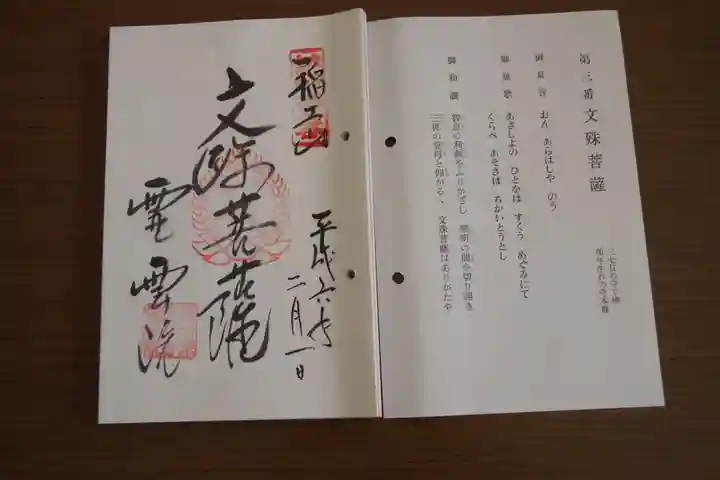 第三番 文殊菩薩
三七日の守り佛
卯年生れの守本尊
御真言 おん あらはしや のう
御詠歌 あさしよの ひとなは すくう めぐみにて
くらべ あそきは ちかいとうとし
御和讃 智恵の利剣をふりかざし 無明の闇を切り開き
三世の覚母と仰がる、 文殊菩薩ばありがたや
平成六年
二月一日
稲荷山
文殊菩薩
霊雲院